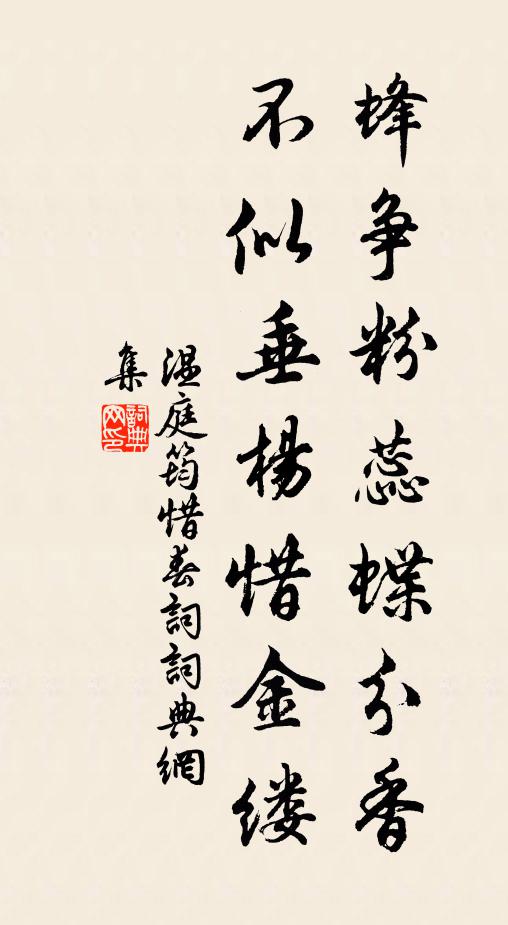 蜂争粉蕊蝶分香
不似垂楊惜金缕
温庭筠惜春詞詞典網
集
詞典
网印